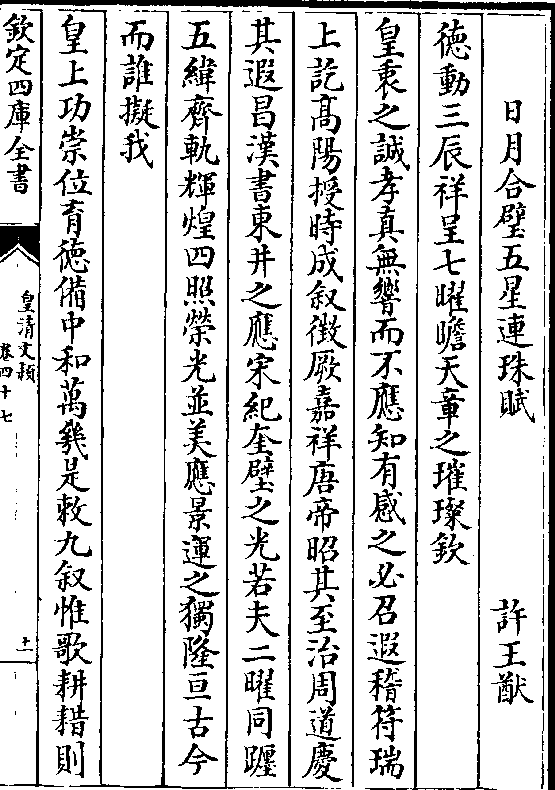 日月合璧五星連珠賦 許王猷
徳動三辰祥呈七曜瞻天章之璀璨欽
皇衷之誠孝真無響而不應知有感之必召遐稽符瑞
上訖髙陽授時成叙徴厥嘉祥唐帝昭其至治周道慶
其遐昌漢書東井之應宋紀奎璧之光若夫二曜同躔
五緯齊軌輝煌四照榮光並美應景運之獨隆亘古今
而誰擬我
皇上功崇位育徳備中和萬幾是敕九叙惟歌耕耤則
欽定四庫全書
皇清文穎
卷四十七
十一